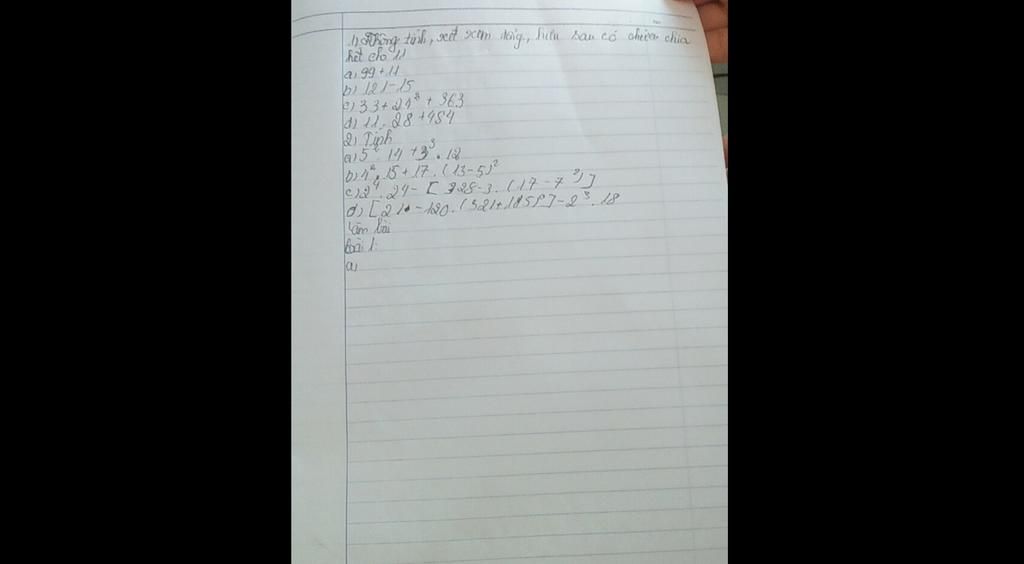 1) Không tính, xét xem tổng, hiệu sau có chia
hết cho 11
a) 99 + 11
b) 121 - 15
c) 33 + 24² + 363
d) 11 . 28 + 454
2) Tính
a) 5² . 14 + 3³ . 12
b) 4² . 15 + 17 . (13 - 5)²
c) 2⁴ . 24 - [328 - 3 . (17 - 7²)]
d) [21 - 120 . (321 + 185)] - 2³ . 18
Làm bài
Bài 1:
a)